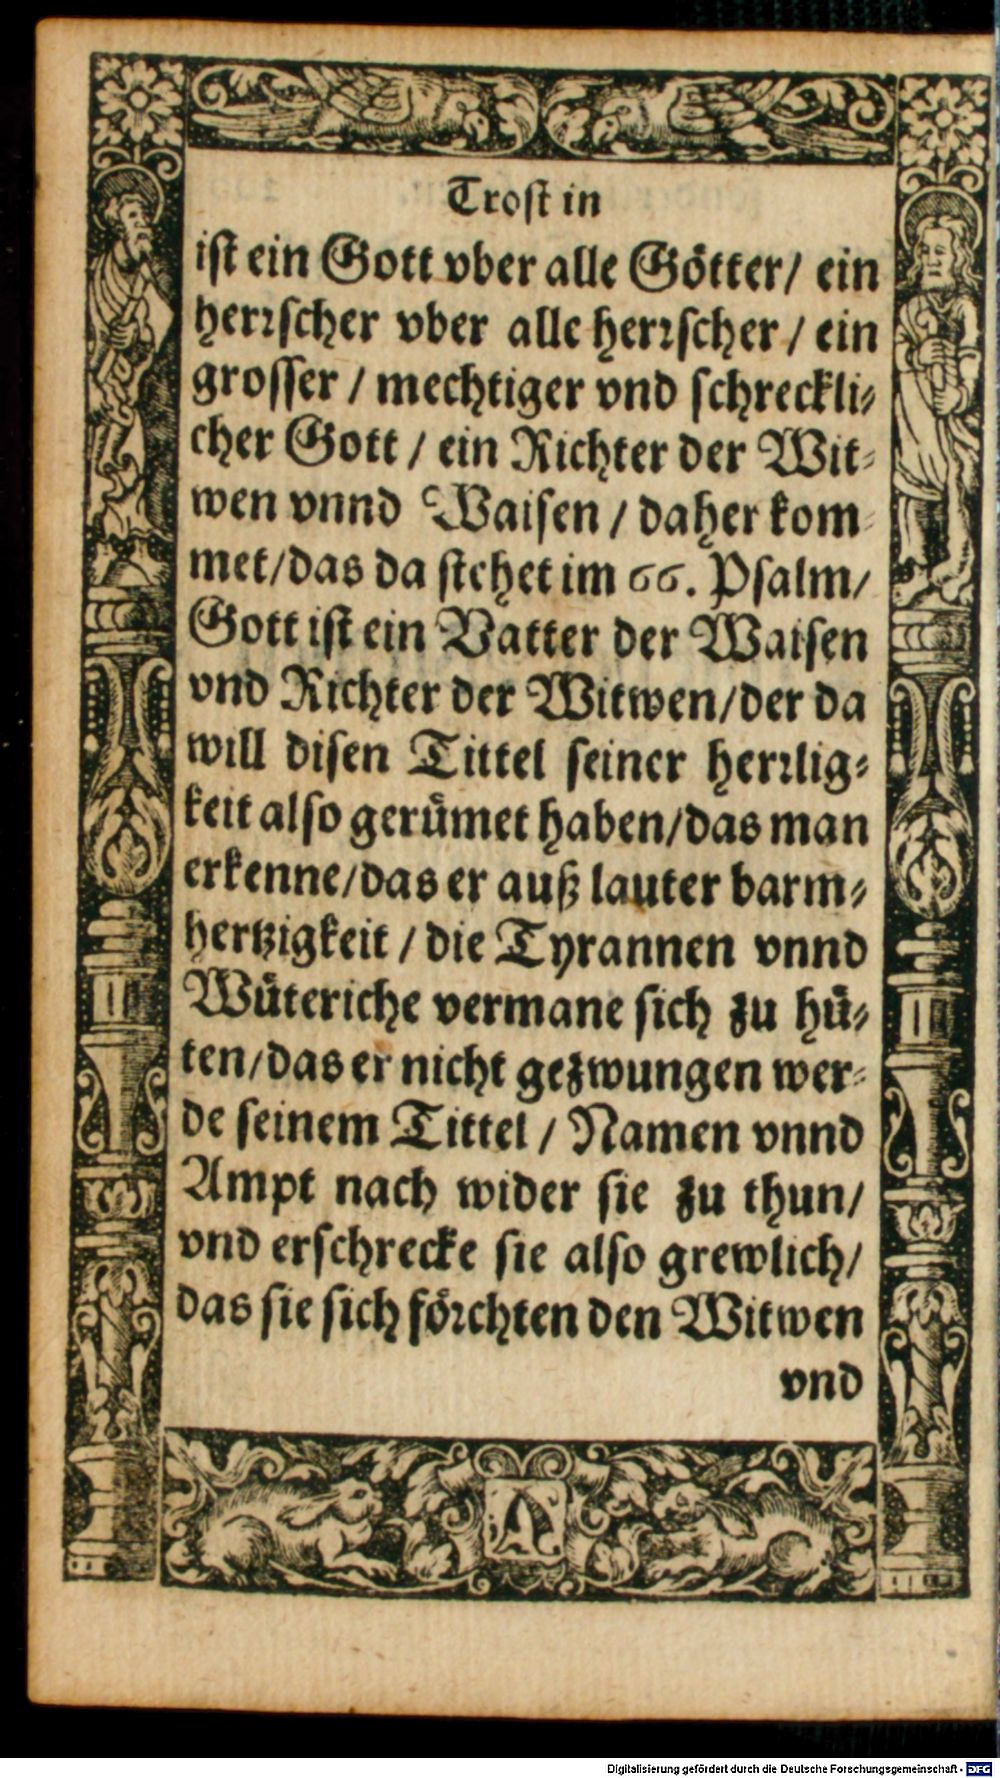 Trost in
ist ein Gott vber alle Götter/ ein
herrscher vber alle herrscher / ein
grosser / mechtiger vnd schreckli⸗
cher Gott / ein Richter der Wit⸗
wen vnnd Waisen / daher kom⸗
met/das da stehet im 66. Psalm/
Gott ist ein Vatter der Waisen
vnd Richter der Witwen/der da
will disen Tittel seiner herrlig⸗
keit also gerümet haben/das man
erkenne/das er auß lauter barm⸗
hertzigkeit / die Tyrannen vnnd
Wüteriche vermane sich zu hü⸗
ten/das er nicht gezwungen wer⸗
de seinem Tittel / Namen vnnd
Ampt nach wider sie zu thun/
vnd erschrecke sie also grewlich/
das sie sich förchten den Witwen
vnd
Digitalisierung gefördert durch die Deutsche Forschungsgemeinschaft - DFG